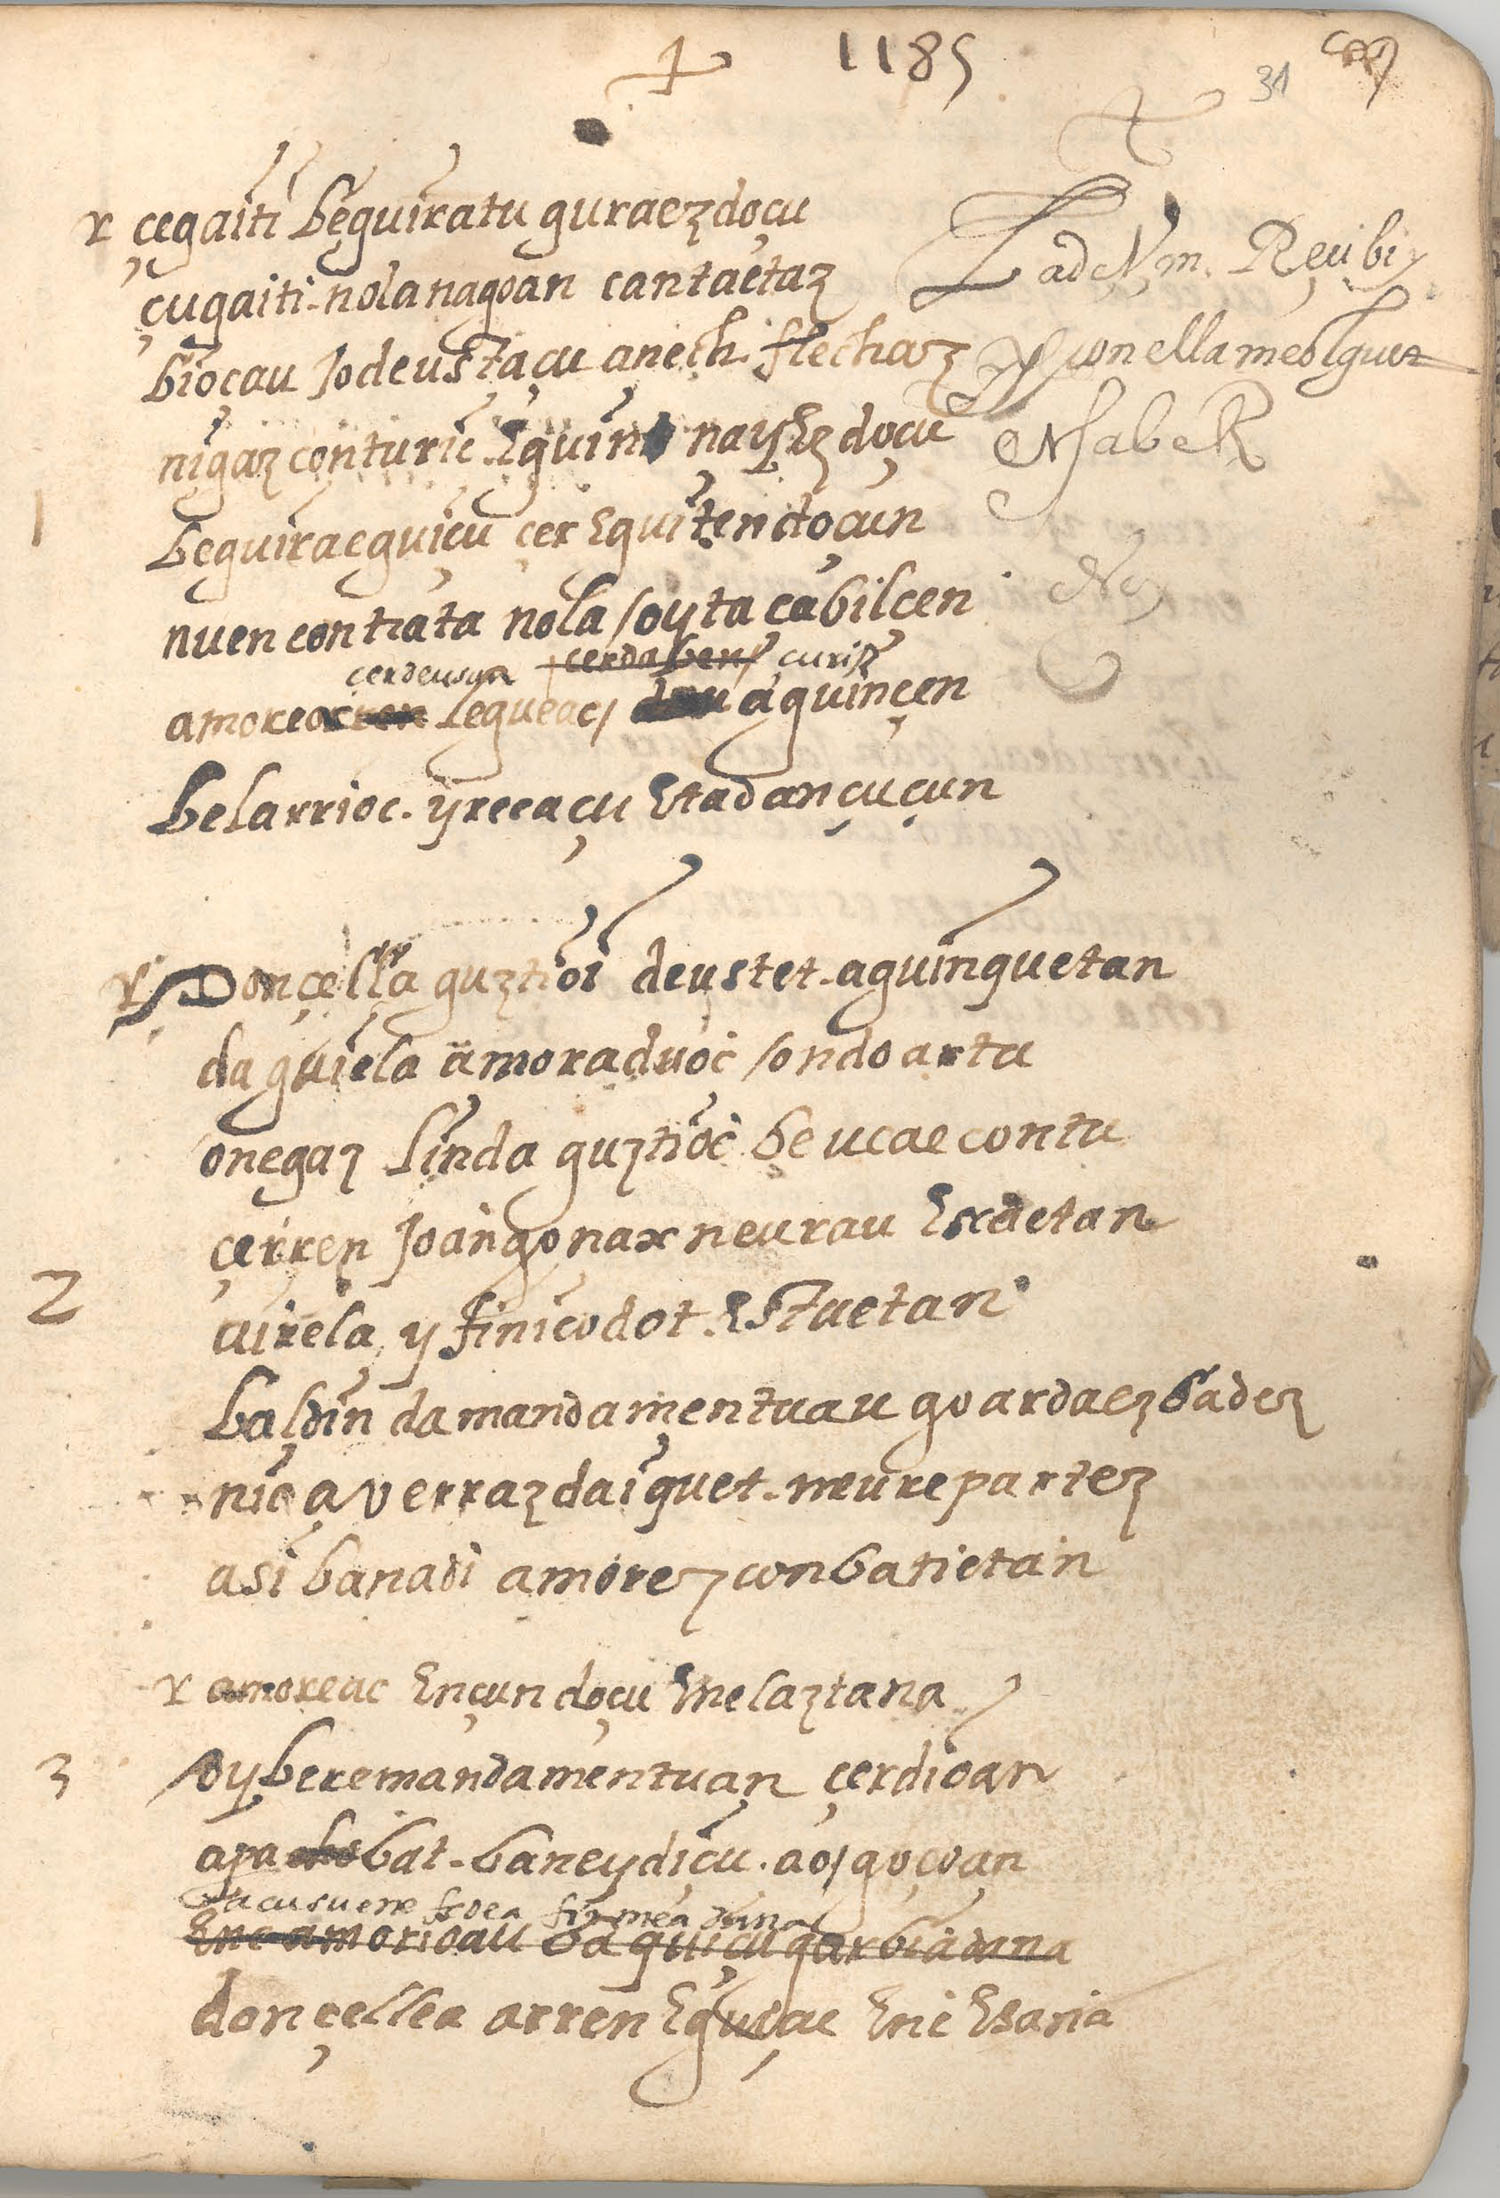 1185
31
r çegaiti beguiratu guraez doçu
çugaiti nola nagoan cantaetaz
biocau Jo deustaçu anech flechaz
nigaz conturic Eguin nay Ez doçu
beguira eguiçu çer Eguiten doçun
nuen contrata nola soyta cabilcen
çerdeusun çerdaben curis
amorearren legueac aguinçen
belarrioc yrecaçu Etadançuçun
La de Vm. Reçibi y
con ella me olgue
No
1
r Donçella guztioi deustet aguinquetan
daguiela amoraduoc ondo artu
onegaz linda guztioc beucae contu
çerren Joango nax neurau Esaetan
cuirela y finico dot Estuetan
baldin da mandamentuau goardaezbadez
nic averraz daiguet neure partez
asi banadi amorez conbatietan
2
r amoreac Ençun doçu Enelaztana
oy bere mandamentuan çerdioan
apa bat baneydiçu aosgoçoan
Etacusu ene fedea firmea dana
Ene amorioau daguiçu garbiadana
donçellea arren Eguiçac Enic Esaria
3